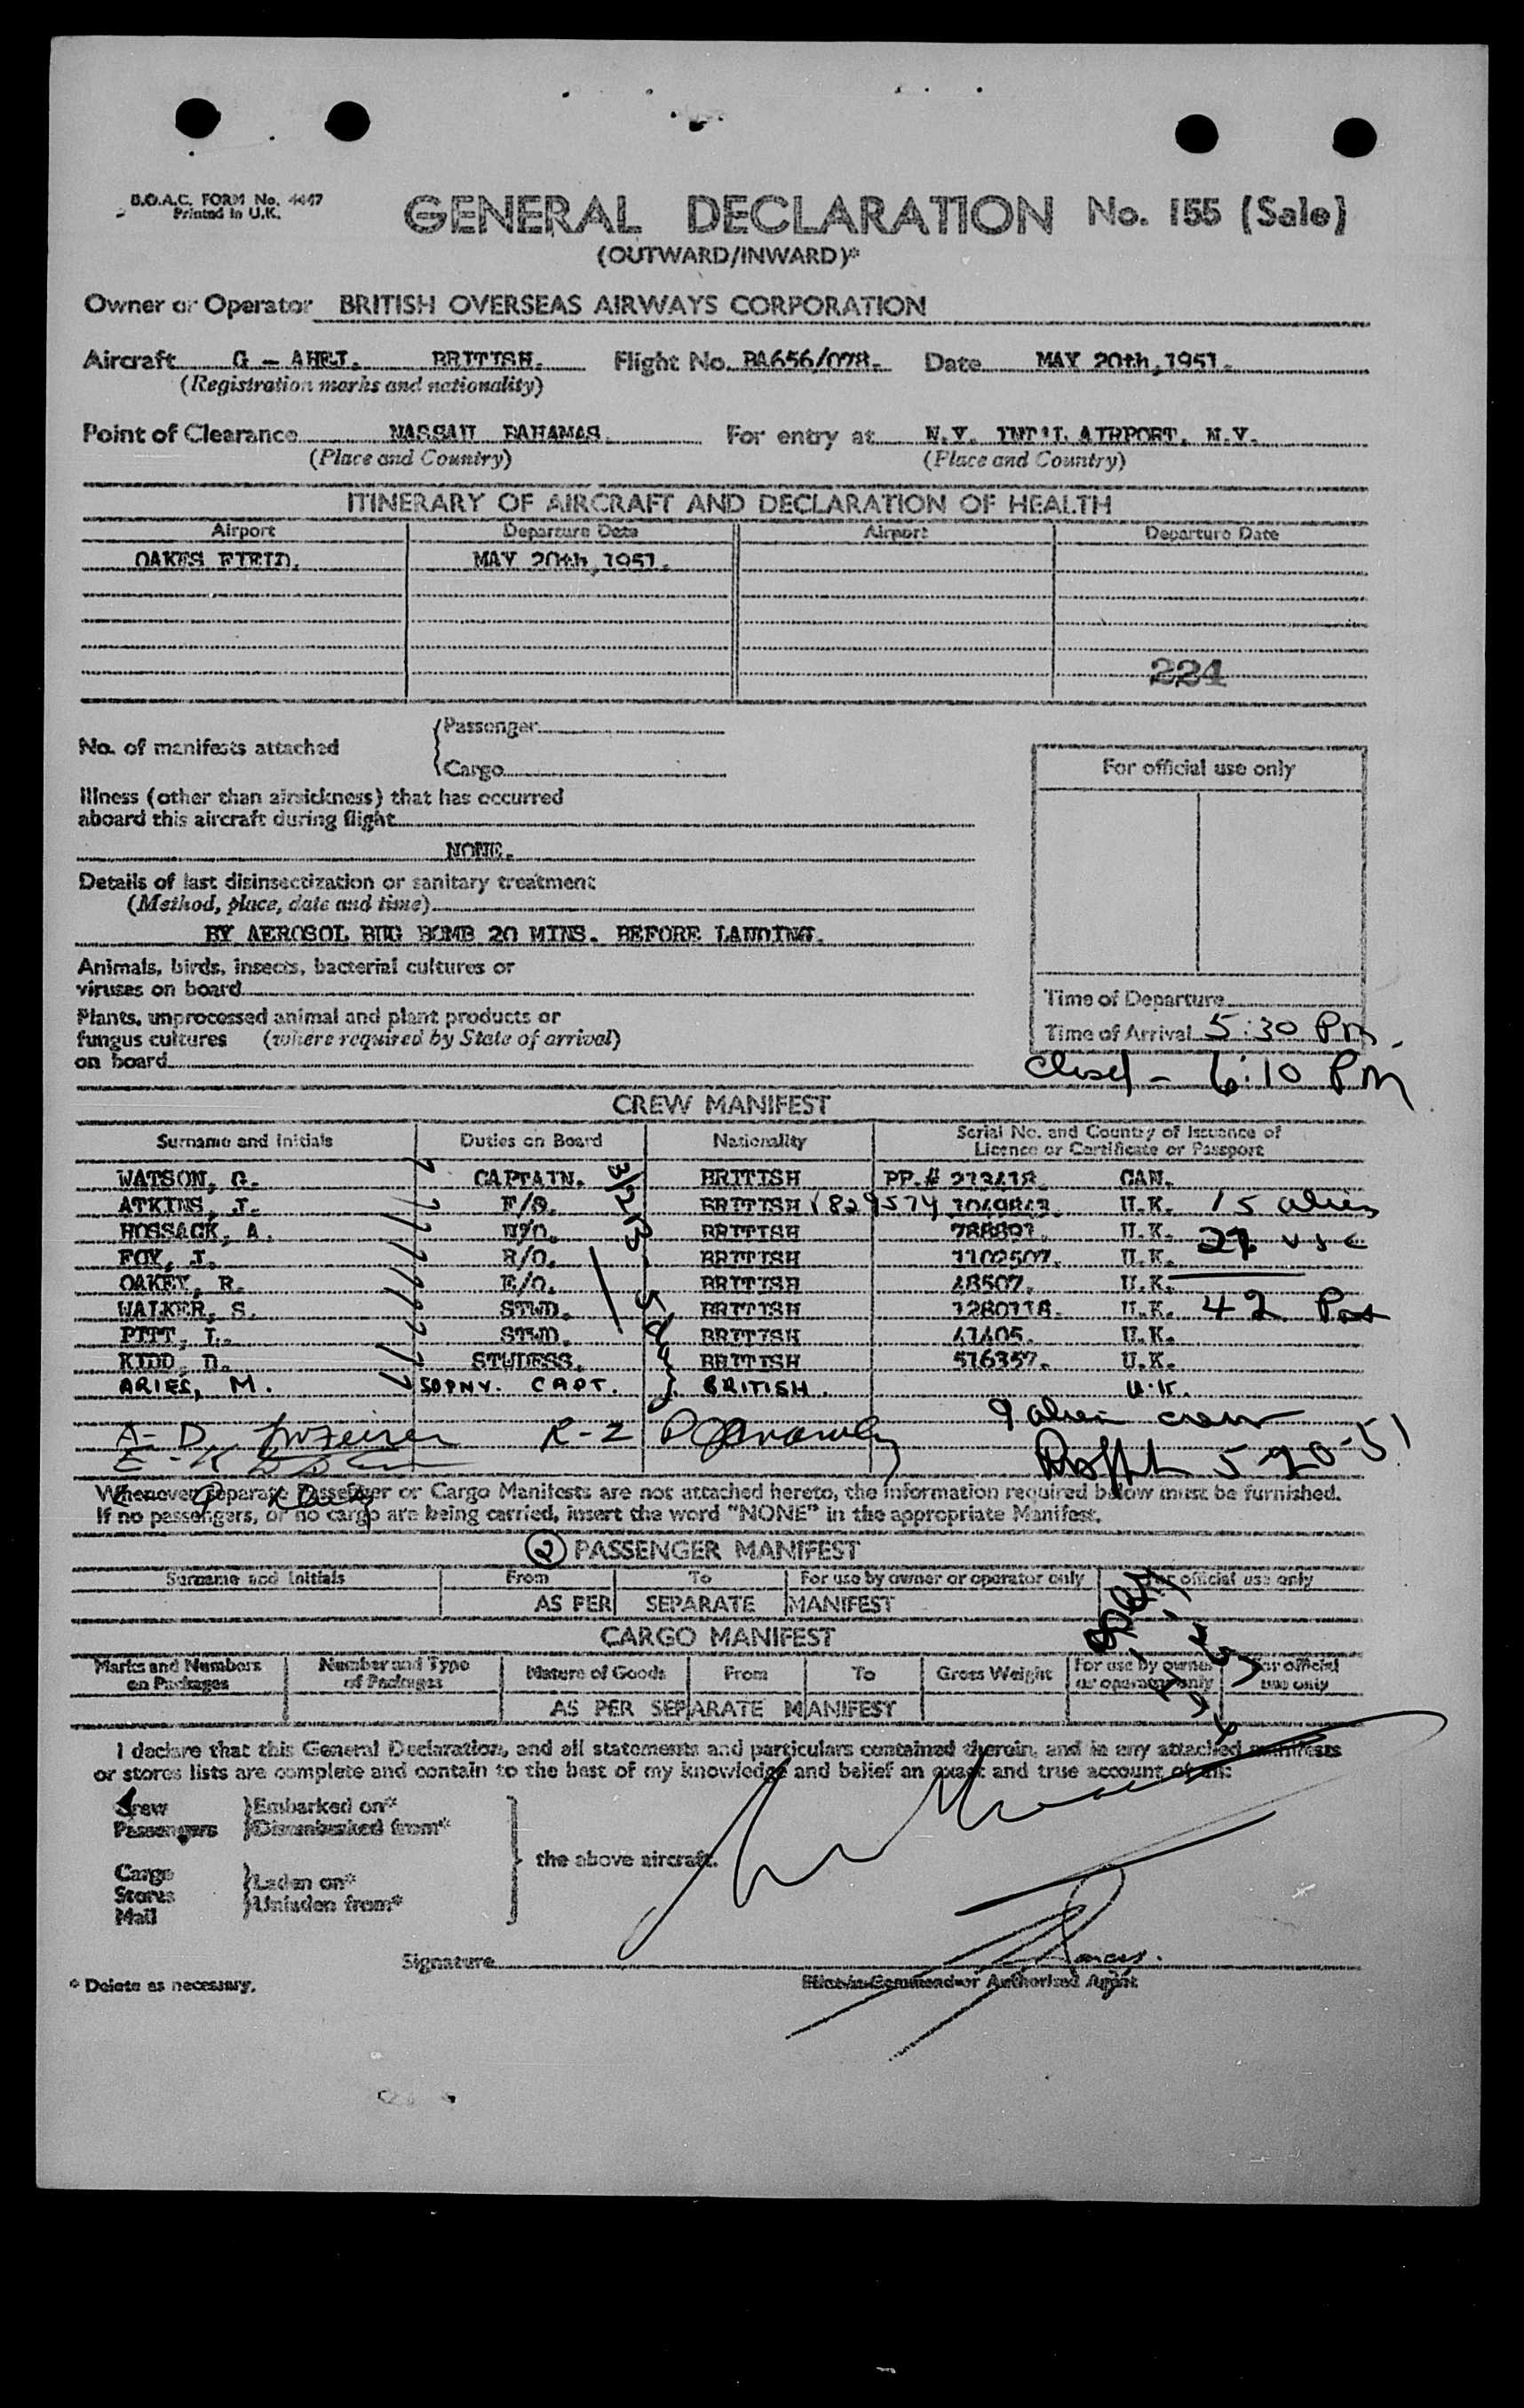 B.O.A.C. FORM No. 4447
Printed in U.K.
GENERAL DECLARATION No. 155 (Sale)
(OUTWARD/INWARD)*
Owner or Operator BRITISH OVERSEAS AIRWAYS CORPORATION
Aircraft G - AHEJ. BRITISH. Flight No. BA656/078. Date MAY 20th,1951.
(Registration marks and nationality)
Point of Clearance NASSAU BAHAMAS. For entry at N.Y. INT'L AIRPORT. N.Y.
(Place and Country) (Place and Country)
ITINERARY OF AIRCRAFT AND DECLARATION OF HEALTH
Airport Departure Date Airport Departure Date
OAKES FIELD. MAY 20th,1951.
224
No. of manifests attached
Passenger
Cargo
For official use only
Illness (other than airsickness) that has occurred
aboard this aircraft during flight
NONE.
Details of last disinsectization or sanitary treatment
(Method, place, date and time)
BY AEROSOL BUG BOMB 20 MINS. BEFORE LANDING.
Animals, birds, insects, bacterial cultures or
viruses on board
Plants, unprocessed animal and plant products or
fungus cultures (where required by State of arrival)
on board
Time of Departure
Time of Arrival 5:30 PM.
Closed - 6:10 PM
CREW MANIFEST
Surname and Initials Duties on Board Nationality Serial No. and Country of Issuance of
Licence or Certificate or Passport
WATSON, G. CAPTAIN. BRITISH PP.# 213418. CAN.
ATKINS, J. F/O. BRITISH 1829574 U.K. 15 alien
HOSSACK, A. N/O. BRITISH 788891. U.K. 27 USC
FOY, J. R/O. BRITISH 1102507. U.K.
OAKEY, R. E/O. BRITISH 48507. U.K.
WALKER, S. STWD. BRITISH 1280118. U.K. 42 Pass
PITT, L. STWD. BRITISH 41405. U.K.
KIDD, D. STWDESS. BRITISH 516357. U.K.
ARIES, M. SUPNY. CAPT. BRITISH. U.K.
9 alien crew
A- D R-2
5-20-51
Whenever separate Passenger or Cargo Manifests are not attached hereto, the information required below must be furnished.
If no passengers, or no cargo are being carried, insert the word "NONE" in the appropriate Manifest.
2 PASSENGER MANIFEST
Surname and Initials From To For use by owner or operator only For official use only
AS PER SEPARATE MANIFEST
CARGO MANIFEST
Marks and Numbers on Packages Number and Type of Packages Nature of Goods From To Gross Weight For use by owner or operator only For official use only
AS PER SEPARATE MANIFEST
I declare that this General Declaration, and all statements and particulars contained therein, and in any attached manifests
or stores lists are complete and contain to the best of my knowledge and belief an exact and true account of all:
Crew Embarked on*
Passengers Disembarked from*
the above aircraft.
Cargo Laden on*
Stores Unladen from*
Mail
Signature
* Delete as necessary. Pilot-in-Command or Authorised Agent